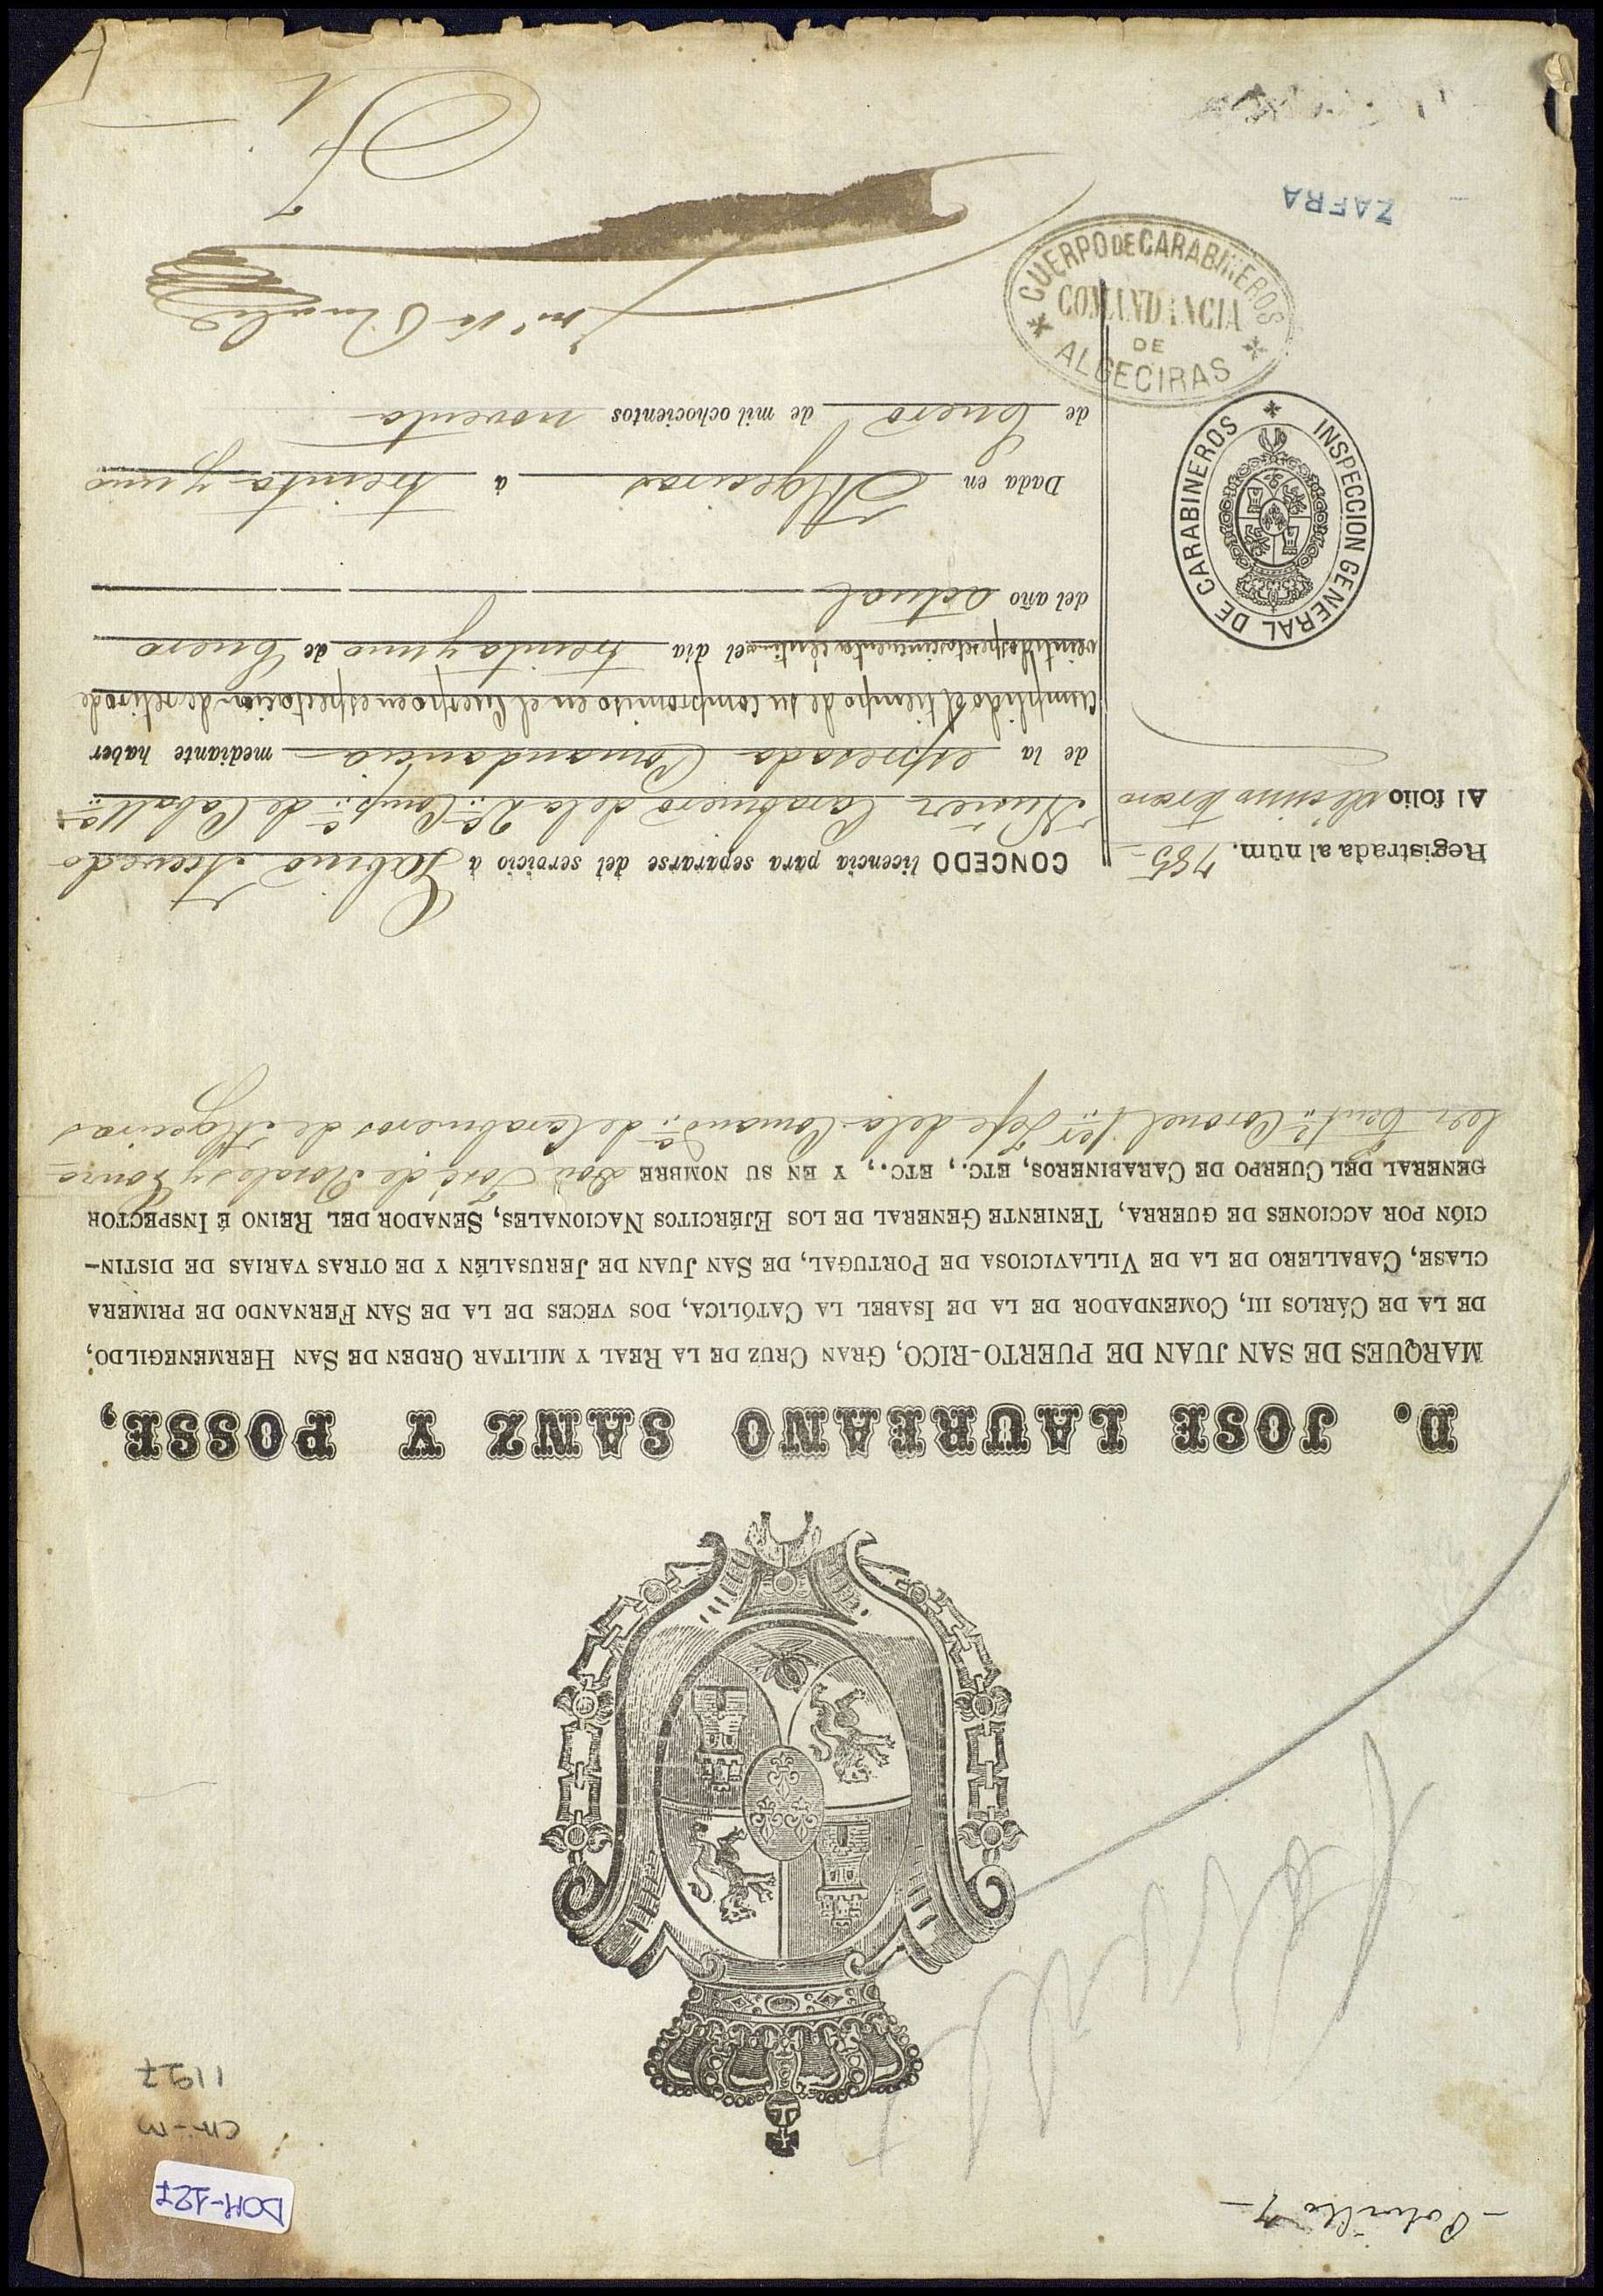 DOM-127
CM-M
1197
D. JOSE LAUREANO SANZ Y POSSE,
MARQUES DE SAN JUAN DE PUERTO-RICO, GRAN CRUZ DE LA REAL Y MILITAR ORDEN DE SAN HERMENEGILDO,
DE LA DE CÁRLOS III, COMENDADOR DE LA DE ISABEL LA CATÓLICA, DOS VECES DE LA DE SAN FERNANDO DE PRIMERA
CLASE, CABALLERO DE LA DE VILLAVICIOSA DE PORTUGAL, DE SAN JUAN DE JERUSALÉN Y DE OTRAS VARIAS DE DISTIN-
CIÓN POR ACCIONES DE GUERRA, TENIENTE GENERAL DE LOS EJÉRCITOS NACIONALES, SENADOR DEL REINO É INSPECTOR
GENERAL DEL CUERPO DE CARABINEROS, ETC., ETC., Y EN SU NOMBRE Don José de Rosales y
Tent.e Coronel 1.er Jefe de la Comand.a de Carabineros de Algeciras
Registrada al núm. 785
Al folio décimo tercero
CONCEDO licencia para separarse del servicio á Sabino Acevedo
Nuñez Carabinero de la 2.a Comp.a de Caball.a
de la expresada Comandancia mediante haber
cumplido el tiempo de su compromiso en el Cuerpo en espectacion de retiro de
veintidos pesetas cincuenta cénti.s el dia treinta y uno de Enero
del año actual
Dada en Algeciras á treinta y uno
de Enero de mil ochocientos noventa
INSPECCION GENERAL DE CARABINEROS
CUERPO DE CARABINEROS
COMANDANCIA
DE
ALGECIRAS
ZAFRA